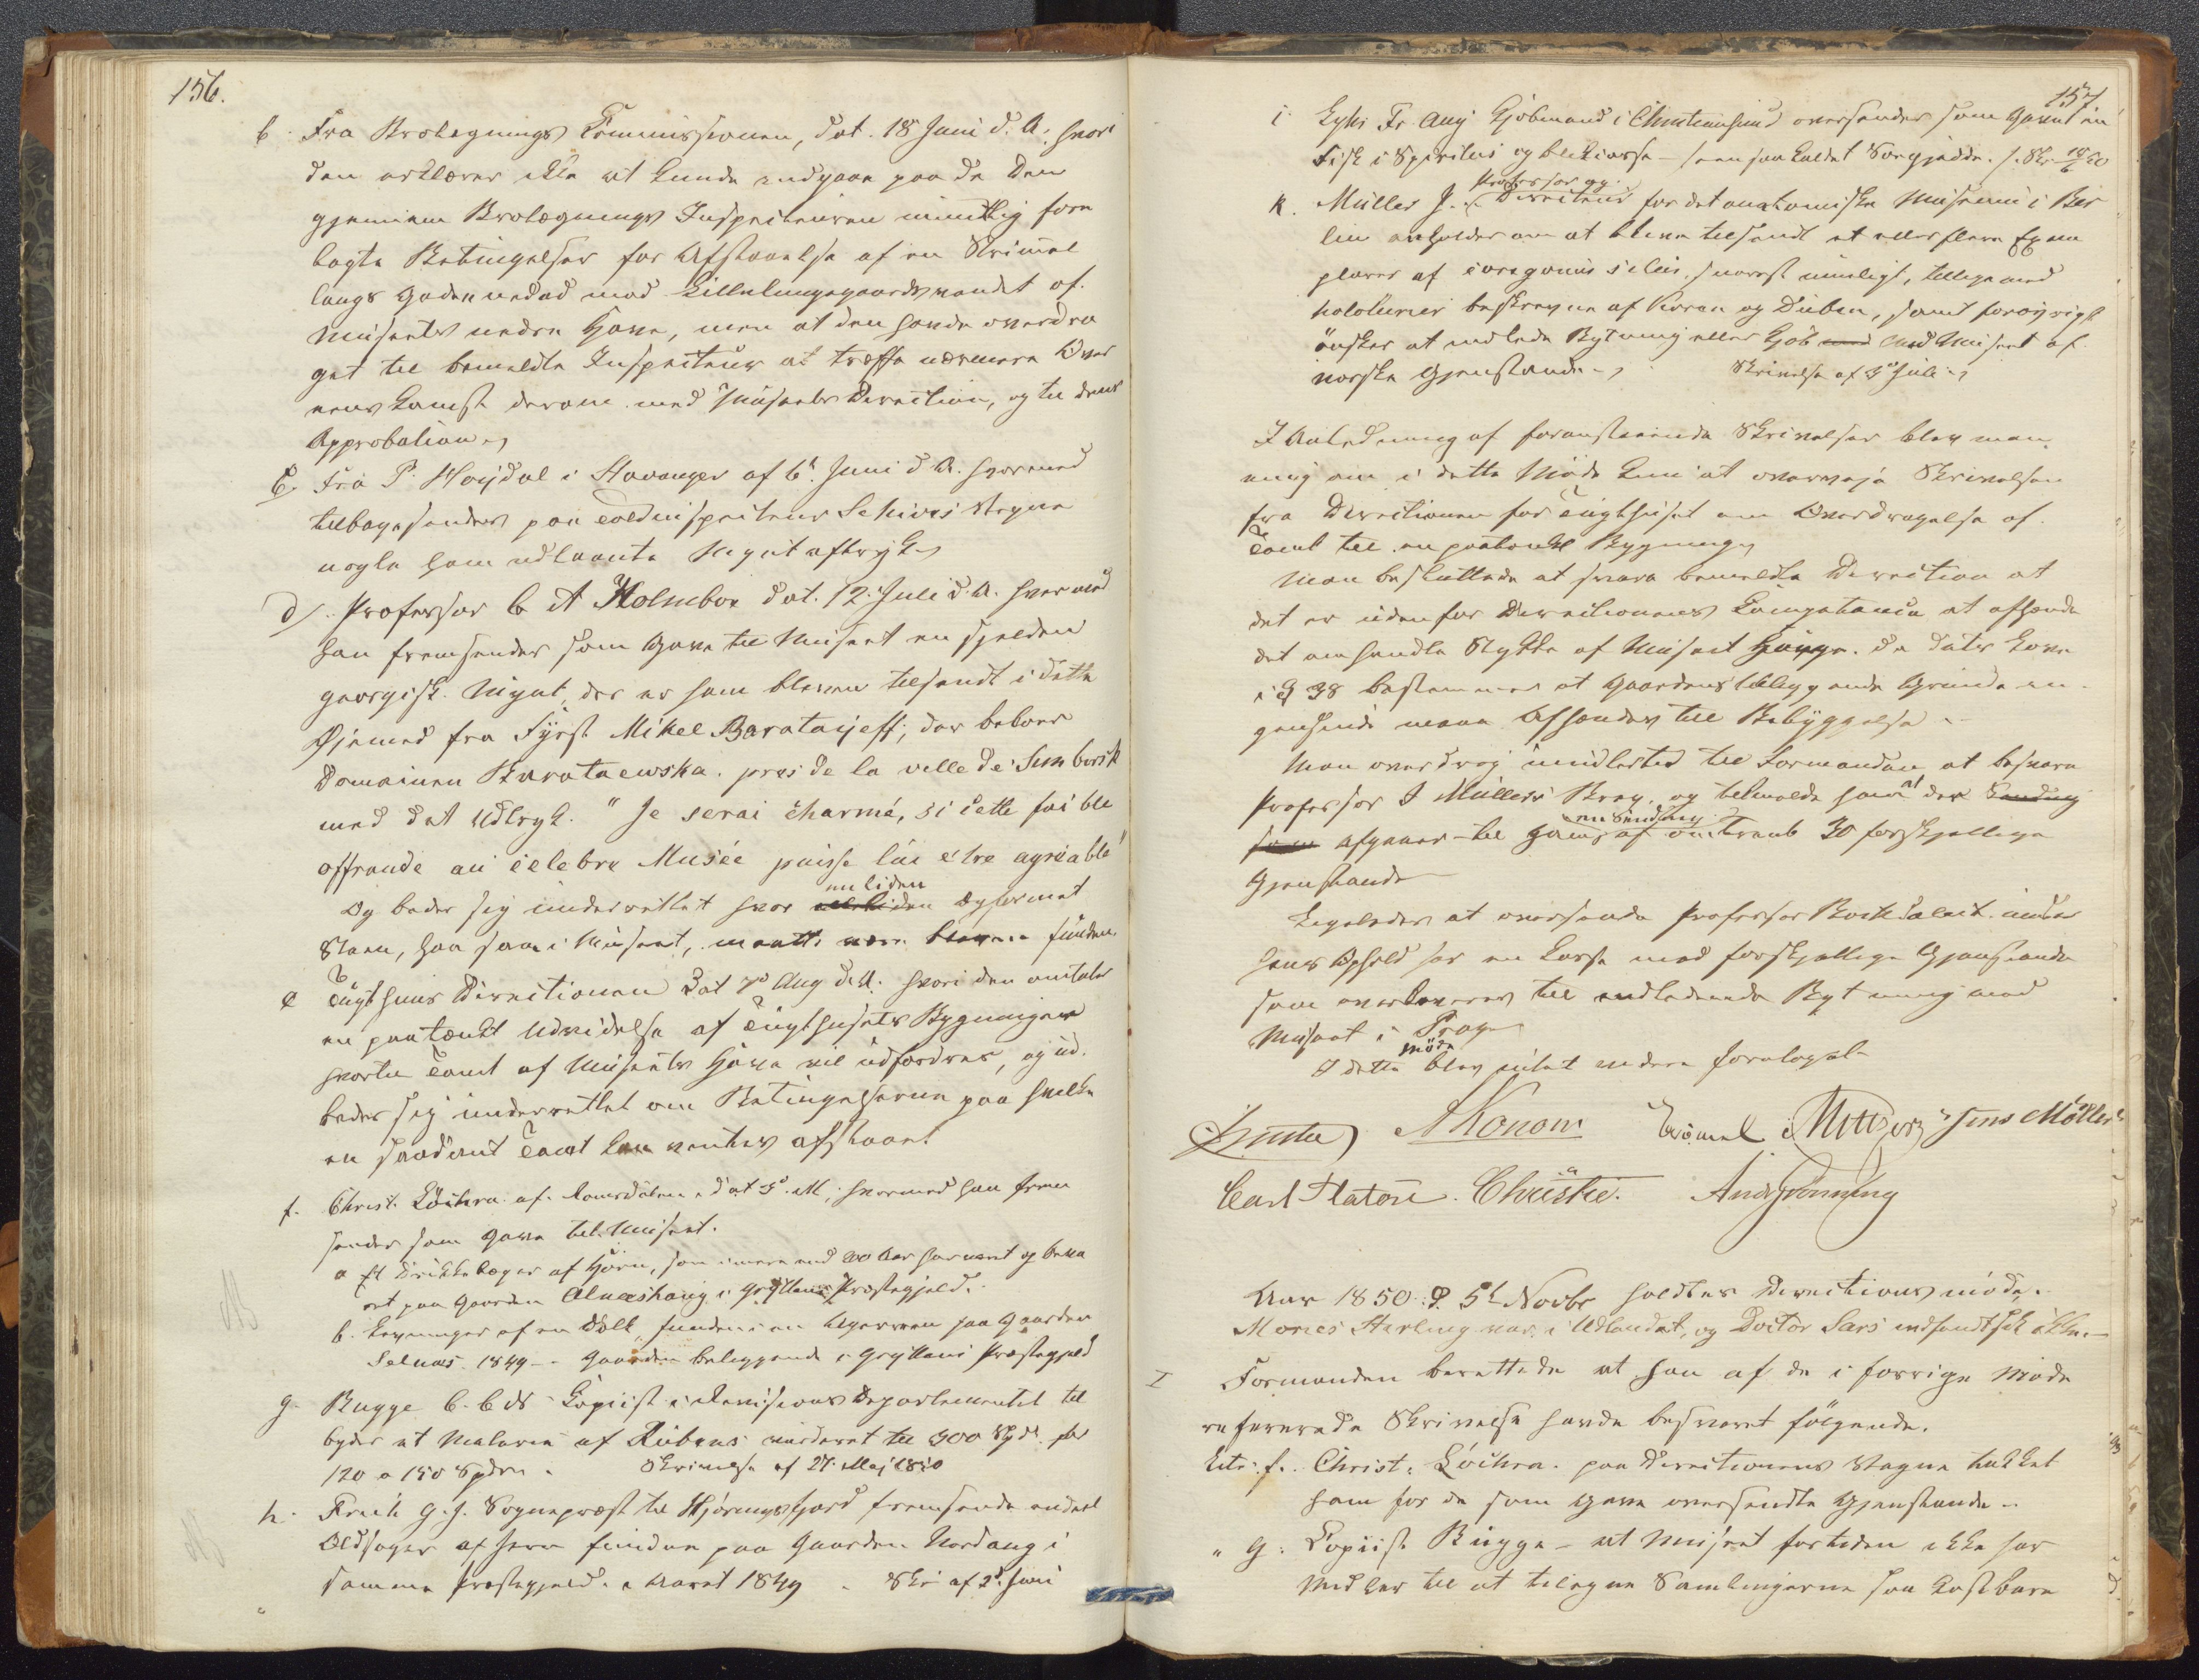 156.
b. Fra Brolegnings Commissionen, dat. 18 Juni d. A. hvori
den erklærer ikke at kunde indgaae paa de Den
gjennem Brolægnings Inspecteuren mundtlig fore
lagte Betingelser for Afstaaelse af en Strimmel
langs Gaden nedad mod Lillelungegaardsvandet af
Museets nedre Have, men at den havde overdra
get til bemeldte Inspecteur at træffe nærmere Over
eenskomst derom med Museets Direction, og til dens
Approbation.
c. Fra P. Høydal i Stavanger af 6t Juni d. A. hvormed
tilbagesendes paa Toldinspecteur Schives Vegne
nogle ham udlaante Myntaftryk
d. Professor C A Holmboe dat. 12. Juli d. A. hvormed
han fremsender som Gave til Museet en sjelden
georgisk Mynt, der er ham bleven tilsendt i dette
Øjemed fra Fyrst Mikel Baratajeff, der beboer
Domainen Barataewska. pres de la ville de Simbirsk
med det Udtryk. "Je serai charmé, si cette faible
offrande au celebre Musée puisse lui etre agréable"
en liden
Og beder sig underrettet hvor Ægformet
Steen, saa som i Museet, maatte være funden
e Tugthuus Directionen dat 7d Aug d. A. hvori den omtaler
en paatænkt Udvidelse af Tugthusets Bygninger
hvortil Tomt af Museets Have vil udfordres, og ud
beder sig underrettet om Betingelserne paa hvilke
en saadant Tomt kan ventes afstaaet
f. Christ. Löchra af Romsdalen dat 3d. M. hvormed han frem
sender som Gave til Museet.
a Et Drikkebæger af Horn, som i mere end 200 Aar har været opbeva
ret paa Gaarden Alnæshaug i Gryttens Præstegjeld.
b. Levninger af en Dolk funden i en Ager paa Gaarden
Selnæs 1849 - Gaarden beliggende i Gryttens Præstegjeld
g Bugge C. C. Copiist i Revisions Departementet til
byder et Malerie af Rubens vurderet til 300 Spd. for
120 a 150 Spdlr. Skrivelse af 27. Maj 1850
h. Frich G. J. Sognepræst til Hjörungfjord fremsender endeel
Oldsager af Jern fundne paa Gaarden Nordang i
samme Præstegjeld i Aaret 1849 Skr. af 2d. Juni
157.
i Fr. Aug Kjöbmand i Christiansund oversender som Gave en
Fisk i Spiritus og Blikkasse - saakaldet Horngjedde. s. Skr. 10/6 50
Professor og
k. Müller J. Directeur for det anatomiske Museum i Ber
lin anholder om at blive tilsendt et eller flere Exem
plarer af coregonus silus, snarest muligt, tillige med
holoturier beskrevne af Koren og Düben, samt forøvrigt
önsker at indlede Bytning eller Kjöb med Museet af
norske Gjenstande - Skrivelse af 3d Juli -
I Anledning af foranstaaende Skrivelser blev man
enig om i dette Möde kun at overveje Skrivelsen
fra Directionen for Tugthuset om Overdragelse af
Tomt til en paatænkt Bygning
Man besluttede at svare bemeldte Direction at
det er udenfor Directionens Competance at afhænde
det omhandlede Stykke af Museets Hauge. da dets Love
i § 38 bestemmer at Gaardens tilliggende Grunde in
gensinde maae afhændes til Bebyggelse -
Man overdrog imidlertid til Formanden at besvare
Professor J Müllers Brev, og tilmelde ham at der
en Sending
afgaaer til ham af omtrent 30 forskjellige
Gjenstande
Ligeledes at oversende Professor Boeck Palent under
hans Ophold her en Kasse med forskjellige Gjenstande
som overleveres til indledende Bytning med
Museet i Prag
Möde
I dette blev intet videre forelagt
A Konow Jens Möller
Carl Platou. Christie. And Grönning
Aar 1850 d. 5t Novbr holdtes Directionsmöde.
Mories Herling var i Udlandet, og Doctor Sars indfandt sig ikke.
I Formanden berettede at han af de i forrige Möde
refererede Skrivelse havde besvaret følgende.
Litr: f. Christ: Löchra. paa Directionens Vegne takket
ham for de som Gave oversendte Gjenstande -
" g: Copiist Bugge - at Museet fortiden ikke har
Midler til at tilegne Samlingerne saa kostbare